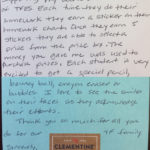 of YES! Each time they do their
homework they earn a sticker in their
homework chart. Once they earn 5
stickers they are able to select a
prize from the prize box. The
money you gave me was used to
purchase prizes. Each student is very
excited to get a special pencil,
bouncy ball, crayon eraser or
bubbles. I love to see the smiles
on their faces as they
their efforts.
Thank you so much for all you
do for our family.
Sincerely,
CLEMENTINE